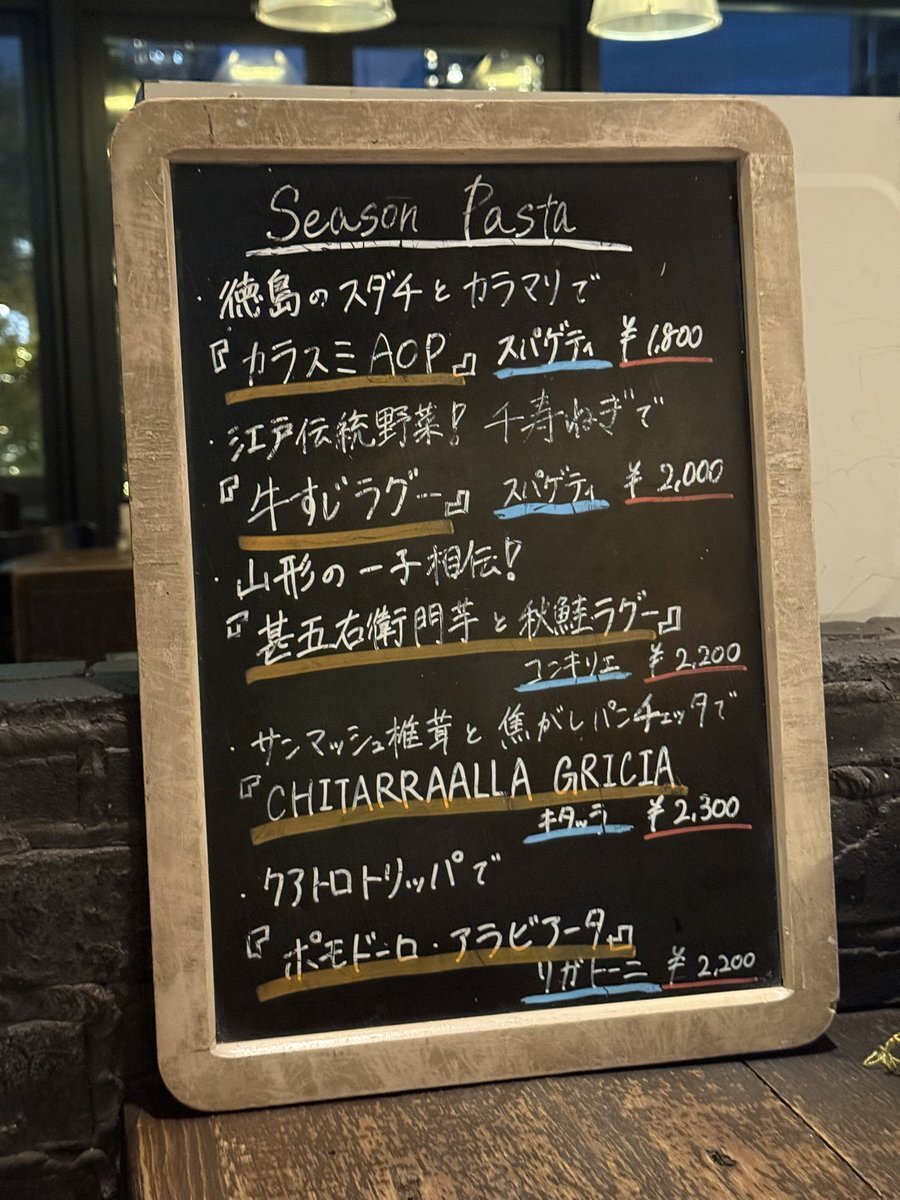 Season Pasta
・徳島のスダチとカラマリで
『カラスミAOP』 スパゲティ ¥1,800
・江戸伝統野菜! 千寿ねぎで
『牛すじラグー』 スパゲティ ¥2,000
・山形の一子相伝!
『甚五右衛門芋と秋鮭ラグー』
コンキリエ ¥2,200
・サンマッシュ椎茸と焦がしパンチェッタで
『CHITARRAALLA GRICIA
キタッラ ¥2,300
・クアトロトリッパで
『ポモドーロ・アラビアータ』
リガトーニ ¥2,200